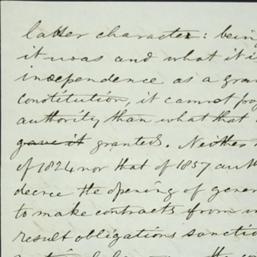 latter character: being
it was and what it i
independence as a gra
constitution, it cannot
authority, than what that
gave it granted. Neither
of 1824 nor that of 1857 auth
decree the opening of gener
to make contracts from
result obligations sanctio